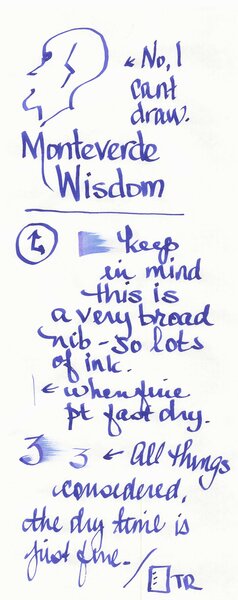 ← No, I
cant
draw.
Monteverde
Wisdom
keep
in mind
this is
a very broad
nib - so lots
of ink.
← when fine
pt fast dry.
3 3 ← All things
considered,
the dry time is
just fine.
TR